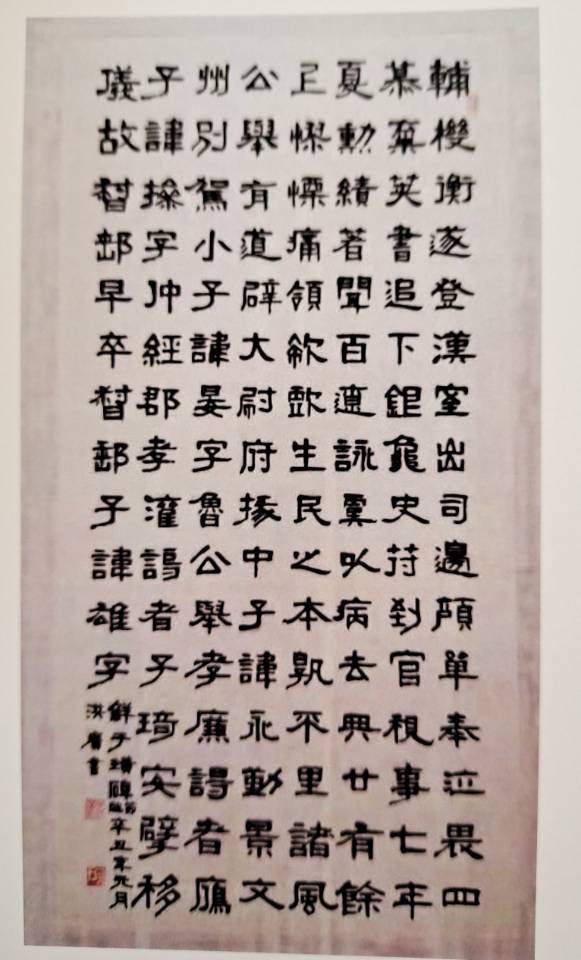 輔機衡遂登漢室出司邊頎單奉泣畏四
慕棄英書追下銀龜史符剖官視事七年
夏勳績著聞百遼詠虞以病去興廿有餘
上慘慄痛領欷歔生民之本孰不里諸風
公舉有道辟大尉府掾中子諱永動景文
州別駕小子諱晏字魯公舉孝廉謁者雁
子諱操字仲經郡孝灌謁者子琦安辟移
儀故督郵早卒督郵子諱雄字
鮮于璜碑節臨辛丑年九月
洪書